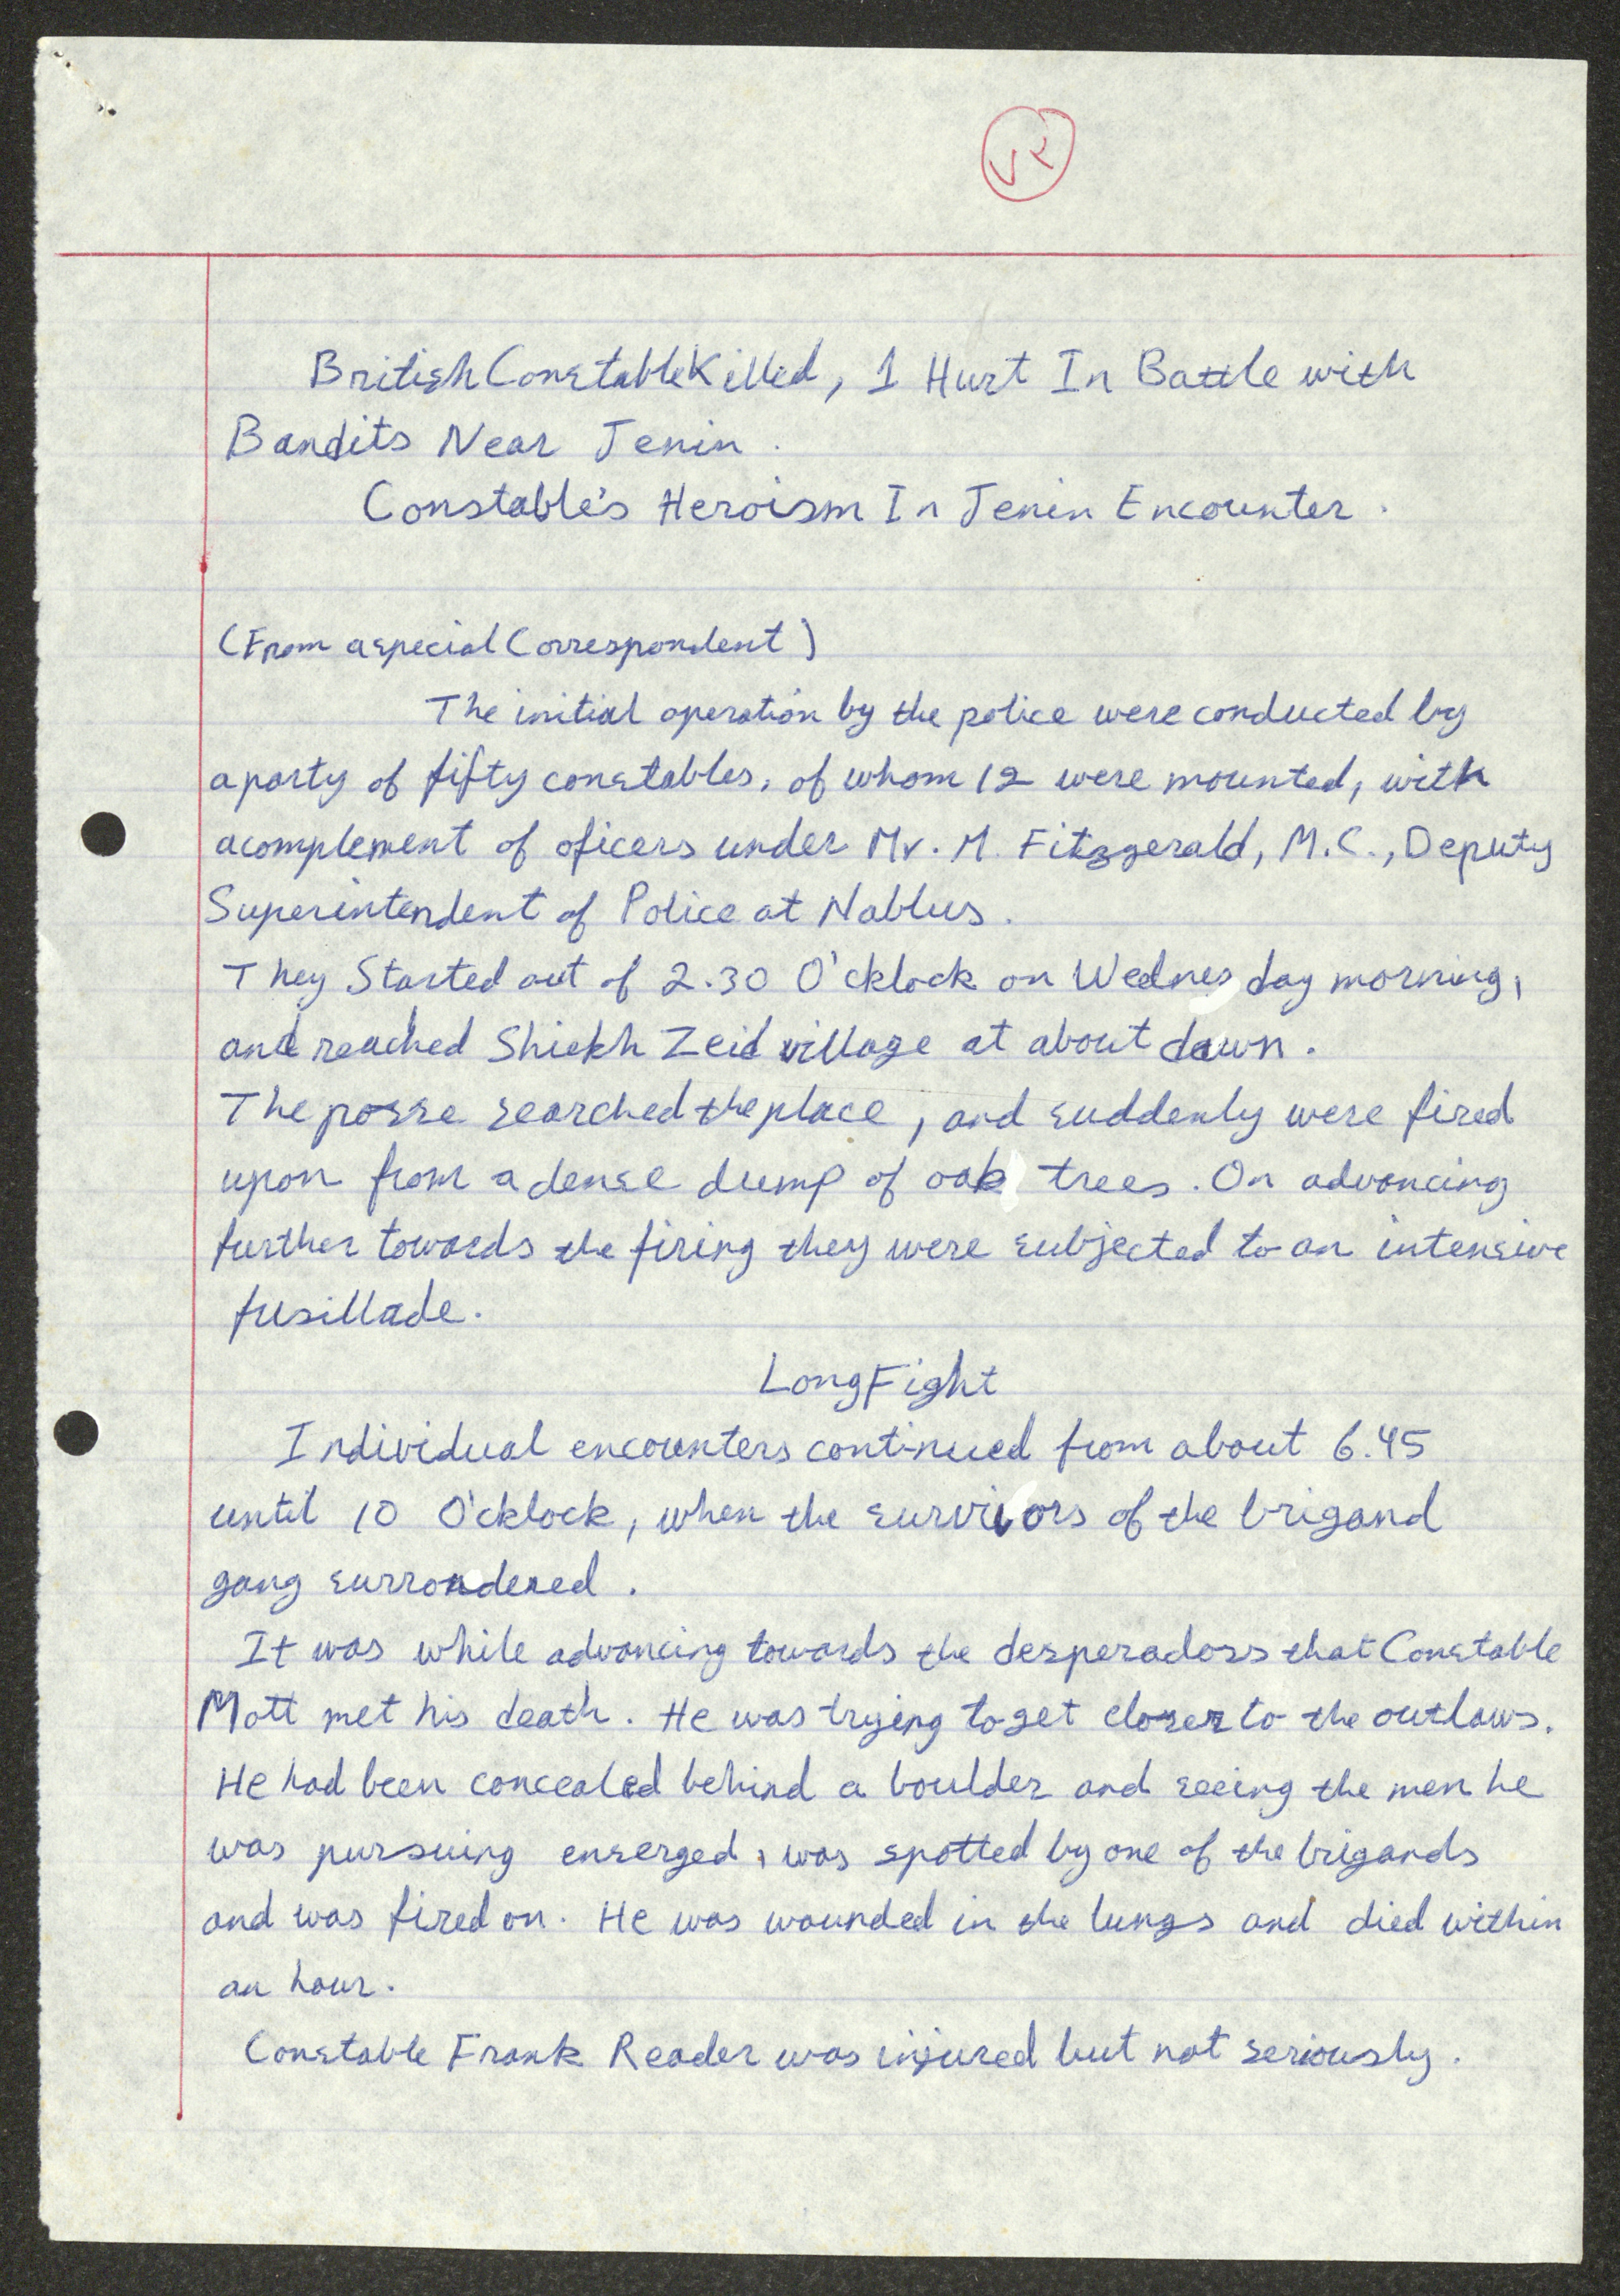 British Constable Killed, 1 Hurt In Battle with
Bandits Near Jenin.
Constable's Heroism In Jenin Encounter.
(From a special Correspondent)
The initial operation by the police were conducted by
a party of fifty constables, of whom 12 were mounted, with
a complement of oficers under Mr. M. Fitzgerald, M.C., Deputy
Superintendent of Police at Nablus.
They Started out of 2.30 O'cklock on Wednesday morning,
and reached Shiekh Zeid village at about dawn.
The posse searched the place, and suddenly were fired
upon from a dense dump of oak trees. On advancing
further towards the firing they were subjected to an intensive
fusillade.
Long Fight
Individual encounters continued from about 6.45
until 10 O'cklock, when the survivors of the brigand
gang surrondered.
It was while advancing towards the desperadoss that Constable
Mott met his death. He was trying to get closer to the outlaws.
He had been concealed behind a boulder and seeing the men he
was pursuing enserged, was spotted by one of the brigands
and was fired on. He was wounded in the lungs and died within
an hour.
Constable Frank Reader was injured but not seriously.